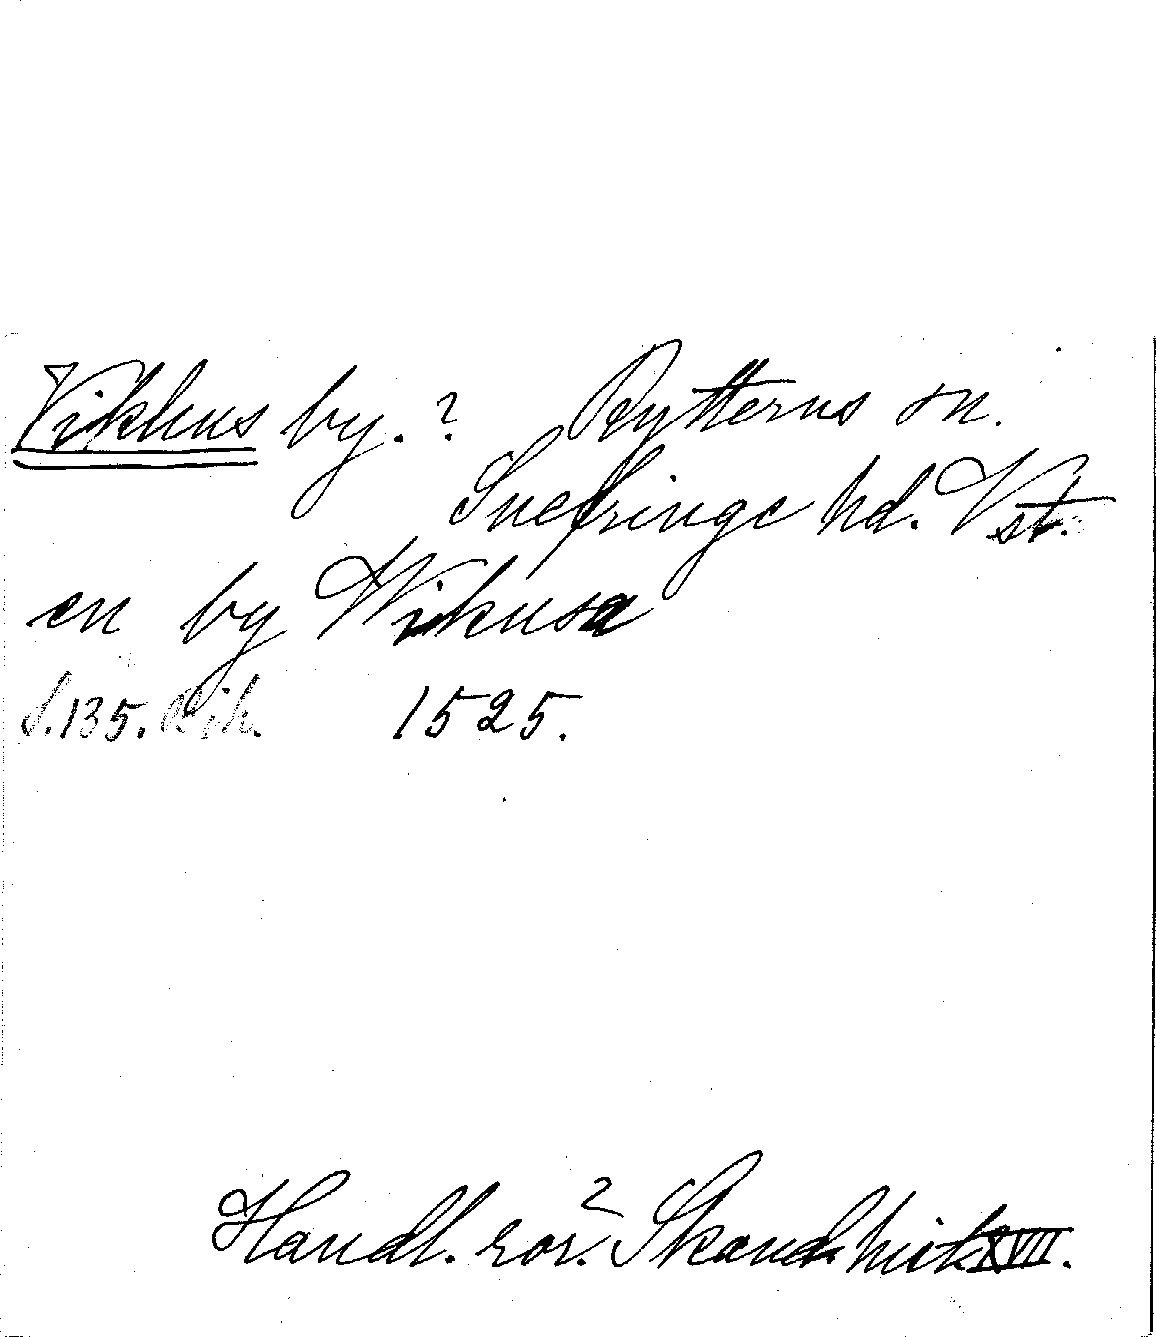 Vikhus by.? Rytterns sn.
Snefringe hd. Vst.
en by Wikusa
S.135. 1525.
Handl. rör. Skand. hist. XVII.